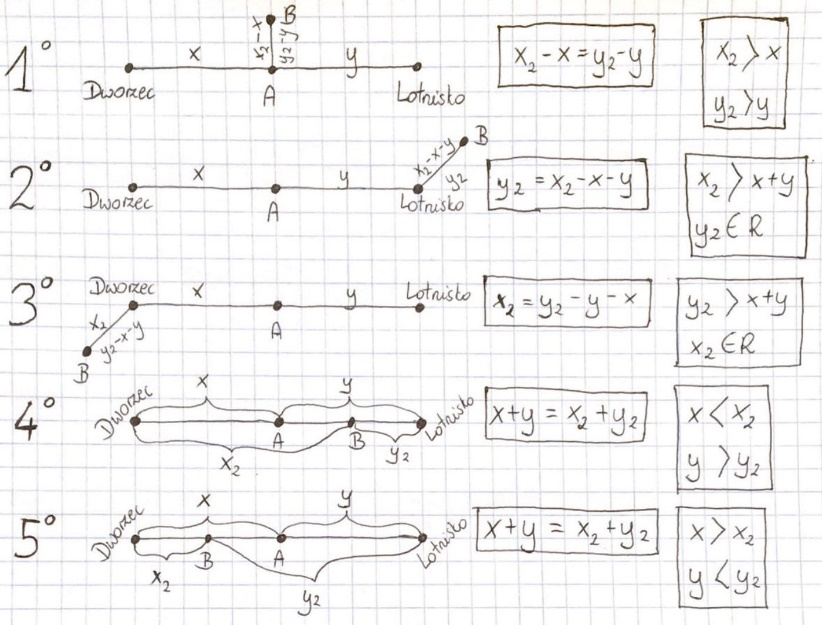 1°
B
x₂-x
y₂-y
x
y
Dworzec
A
Lotnisko
x₂-x=y₂-y
x₂>x
y₂>y
2°
B
x₂-x-y
y₂
x
y
Dworzec
A
Lotnisko
y₂=x₂-x-y
x₂>x+y
y₂∈R
3°
Dworzec
x
y
Lotnisko
x₂
y₂-y-x
A
B
x₂=y₂-y-x
y₂>x+y
x₂∈R
4°
Dworzec
x
y
Lotnisko
A
B
x₂
y₂
x+y=x₂+y₂
x<x₂
y>y₂
5°
Dworzec
x
y
Lotnisko
B
A
x₂
y₂
x+y=x₂+y₂
x>x₂
y<y₂